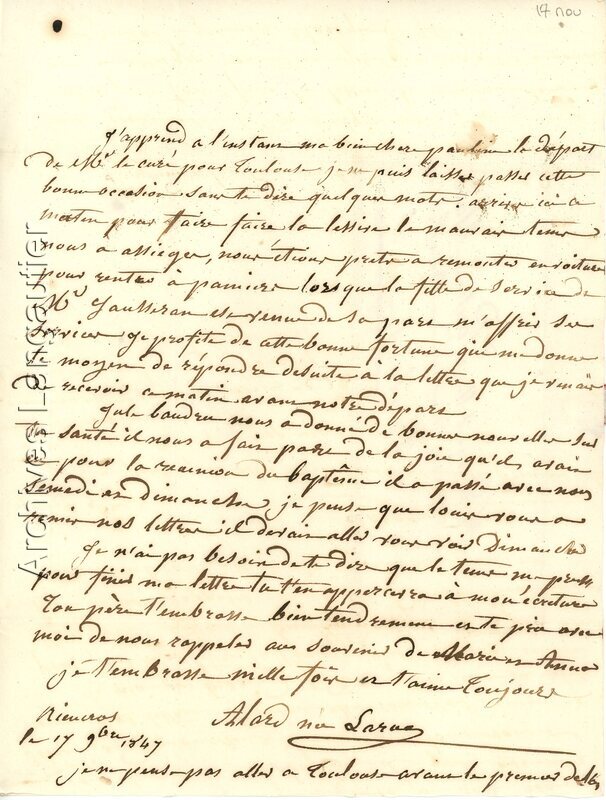 17 nov
J'apprend a l'instant ma bien chere pauline le départ
de Mr le curé pour Toulouse je ne puis laisser passer cette
bonne occasion sans te dire quelques mots. arrivée ici ce
matin pour faire faire la lessive le mauvais tems
nous a assieger, nous étions prets a remonter en voiture
pour rentrer à pamiers lorsque la fille de service de
Mr Jausseran est venue de sa part m'offrir ses
services je profite de cette bonne fortune qui me donne
le moyen de répondre desuite à la lettre que je venais
recevoir ce matin avant notre départ
Jule baudru nous a donné de bonne nouvelles sur
ta santé il nous a fait part de la joie qu'ils avait
eu pour la reunion du baptême il a passé avec nous
Samedi et dimanche je pense que louis vous a
remis nos lettres il devait aller vous voir Dimanche
Je n'ai pas besoin de te dire que le tems me presse
pour finir ma lettre tu t'en appercevra à mon écriture
Ton père t'embrasse bien tendrement et te prie avec
moi de nous rappeler aux souvenir de Marie et Anna
je t'embrasse mille fois et t'aime Toujours
Alard née Larue
Rieucros
le 17 9bre 1847
je ne pense pas aller a Toulouse avant le premier de
Archives Langautier